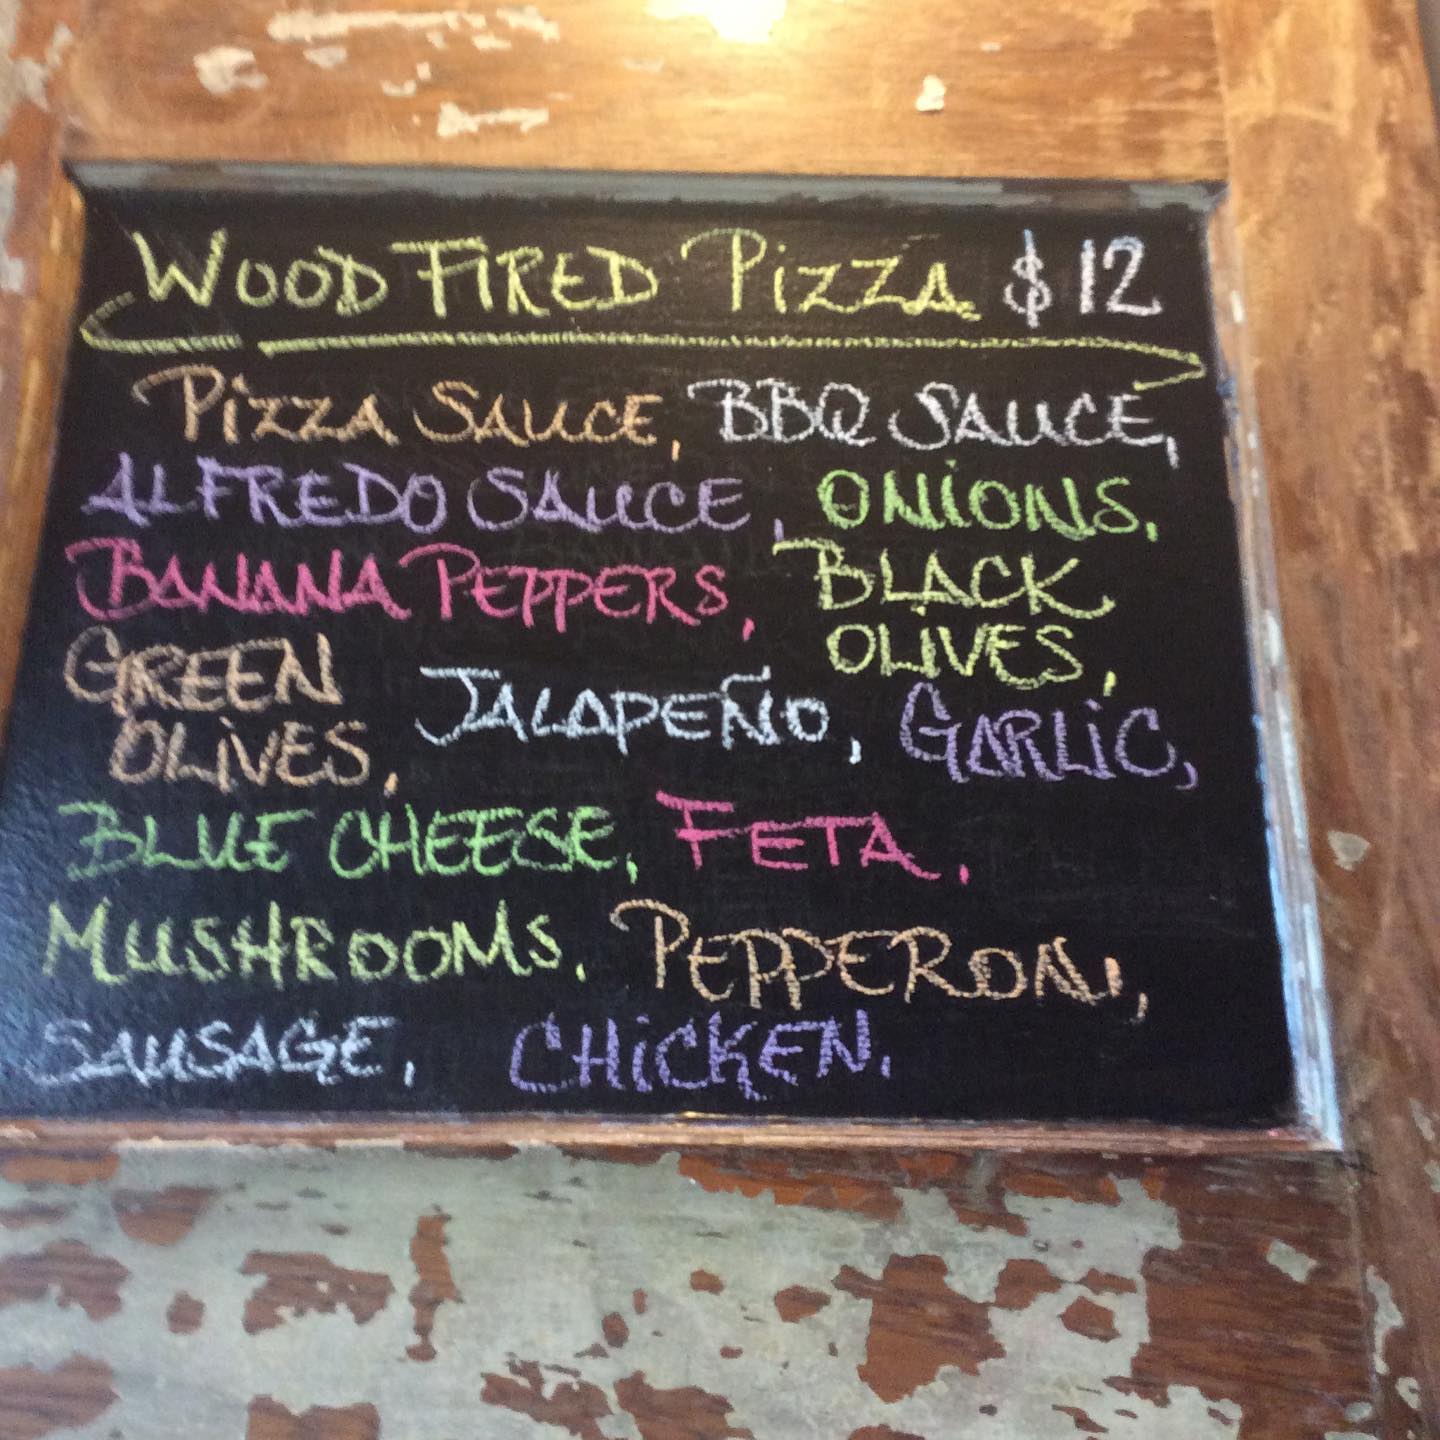 WOOD FIRED PIZZA $12
PIZZA SAUCE, BBQ SAUCE,
ALFREDO SAUCE, ONIONS,
BANANA PEPPERS, BLACK OLIVES,
GREEN OLIVES, JALAPEÑO, GARLIC,
BLUE CHEESE, FETA,
MUSHROOMS, PEPPERONI,
SAUSAGE, CHICKEN,